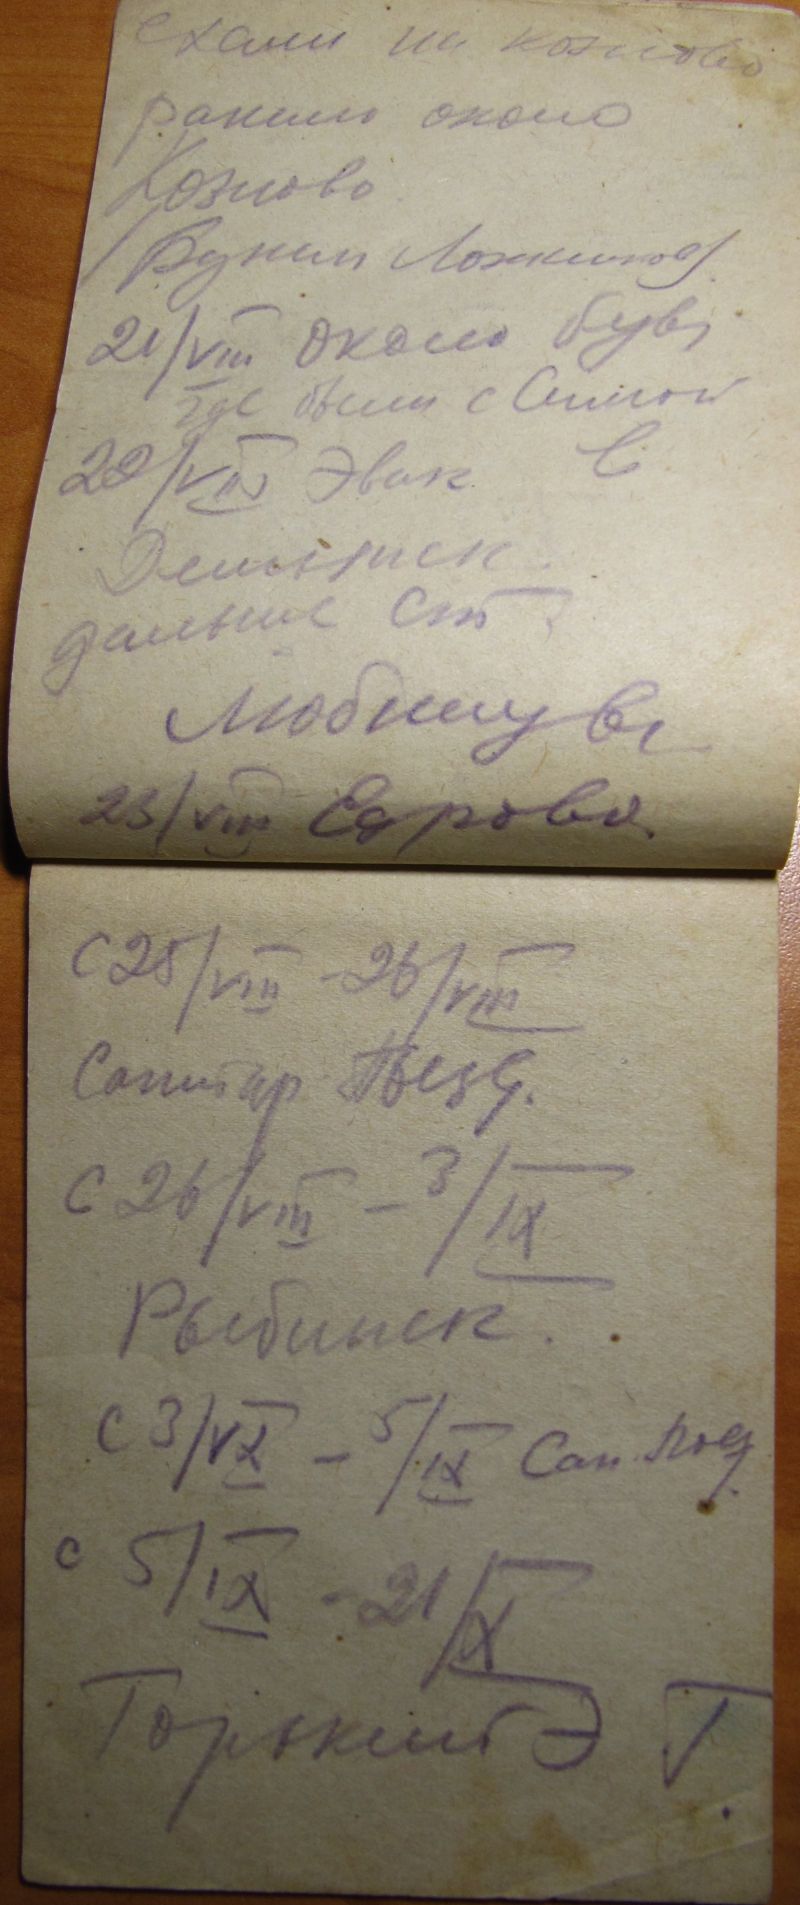 ехали на Козлово
ранили около
Козлово
21/VIII около
где были с Симой
22/VIII Эвак в
Демянск.
дальше ст.
23/VIII Едрово
С 25/VIII - 26/VIII
Санитар Поезд.
С 26/VIII - 3/IX
Рыбинск.
С 3/IX - 5/IX Сан. поезд
с 5/IX - 21/X
Горький Э Г.